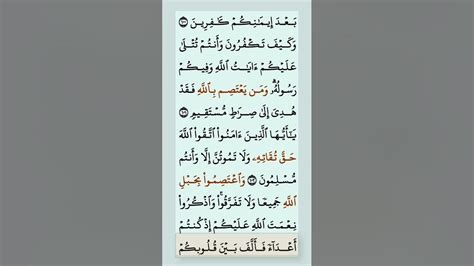 بَعْدَ إِيمَـٰنِكُمْ كَـٰفِرِينَ ١٠٠
وَكَيْفَ تَكْفُرُونَ وَأَنتُمْ تُتْلَىٰ
عَلَيْكُمْ ءَايَـٰتُ ٱللَّهِ وَفِيكُمْ
رَسُولُهُۥ ۗ وَمَن يَعْتَصِم بِٱللَّهِ فَقَدْ
هُدِىَ إِلَىٰ صِرَٰطٍ مُّسْتَقِيمٍ ١٠١
يَـٰٓأَيُّهَا ٱلَّذِينَ ءَامَنُوا۟ ٱتَّقُوا۟ ٱللَّهَ
حَقَّ تُقَاتِهِۦ وَلَا تَمُوتُنَّ إِلَّا وَأَنتُم
مُّسْلِمُونَ ١٠٢ وَٱعْتَصِمُوا۟ بِحَبْلِ
ٱللَّهِ جَمِيعًا وَلَا تَفَرَّقُوا۟ ۚ وَٱذْكُرُوا۟
نِعْمَتَ ٱللَّهِ عَلَيْكُمْ إِذْ كُنتُمْ
أَعْدَآءً فَأَلَّفَ بَيْنَ قُلُوبِكُمْ